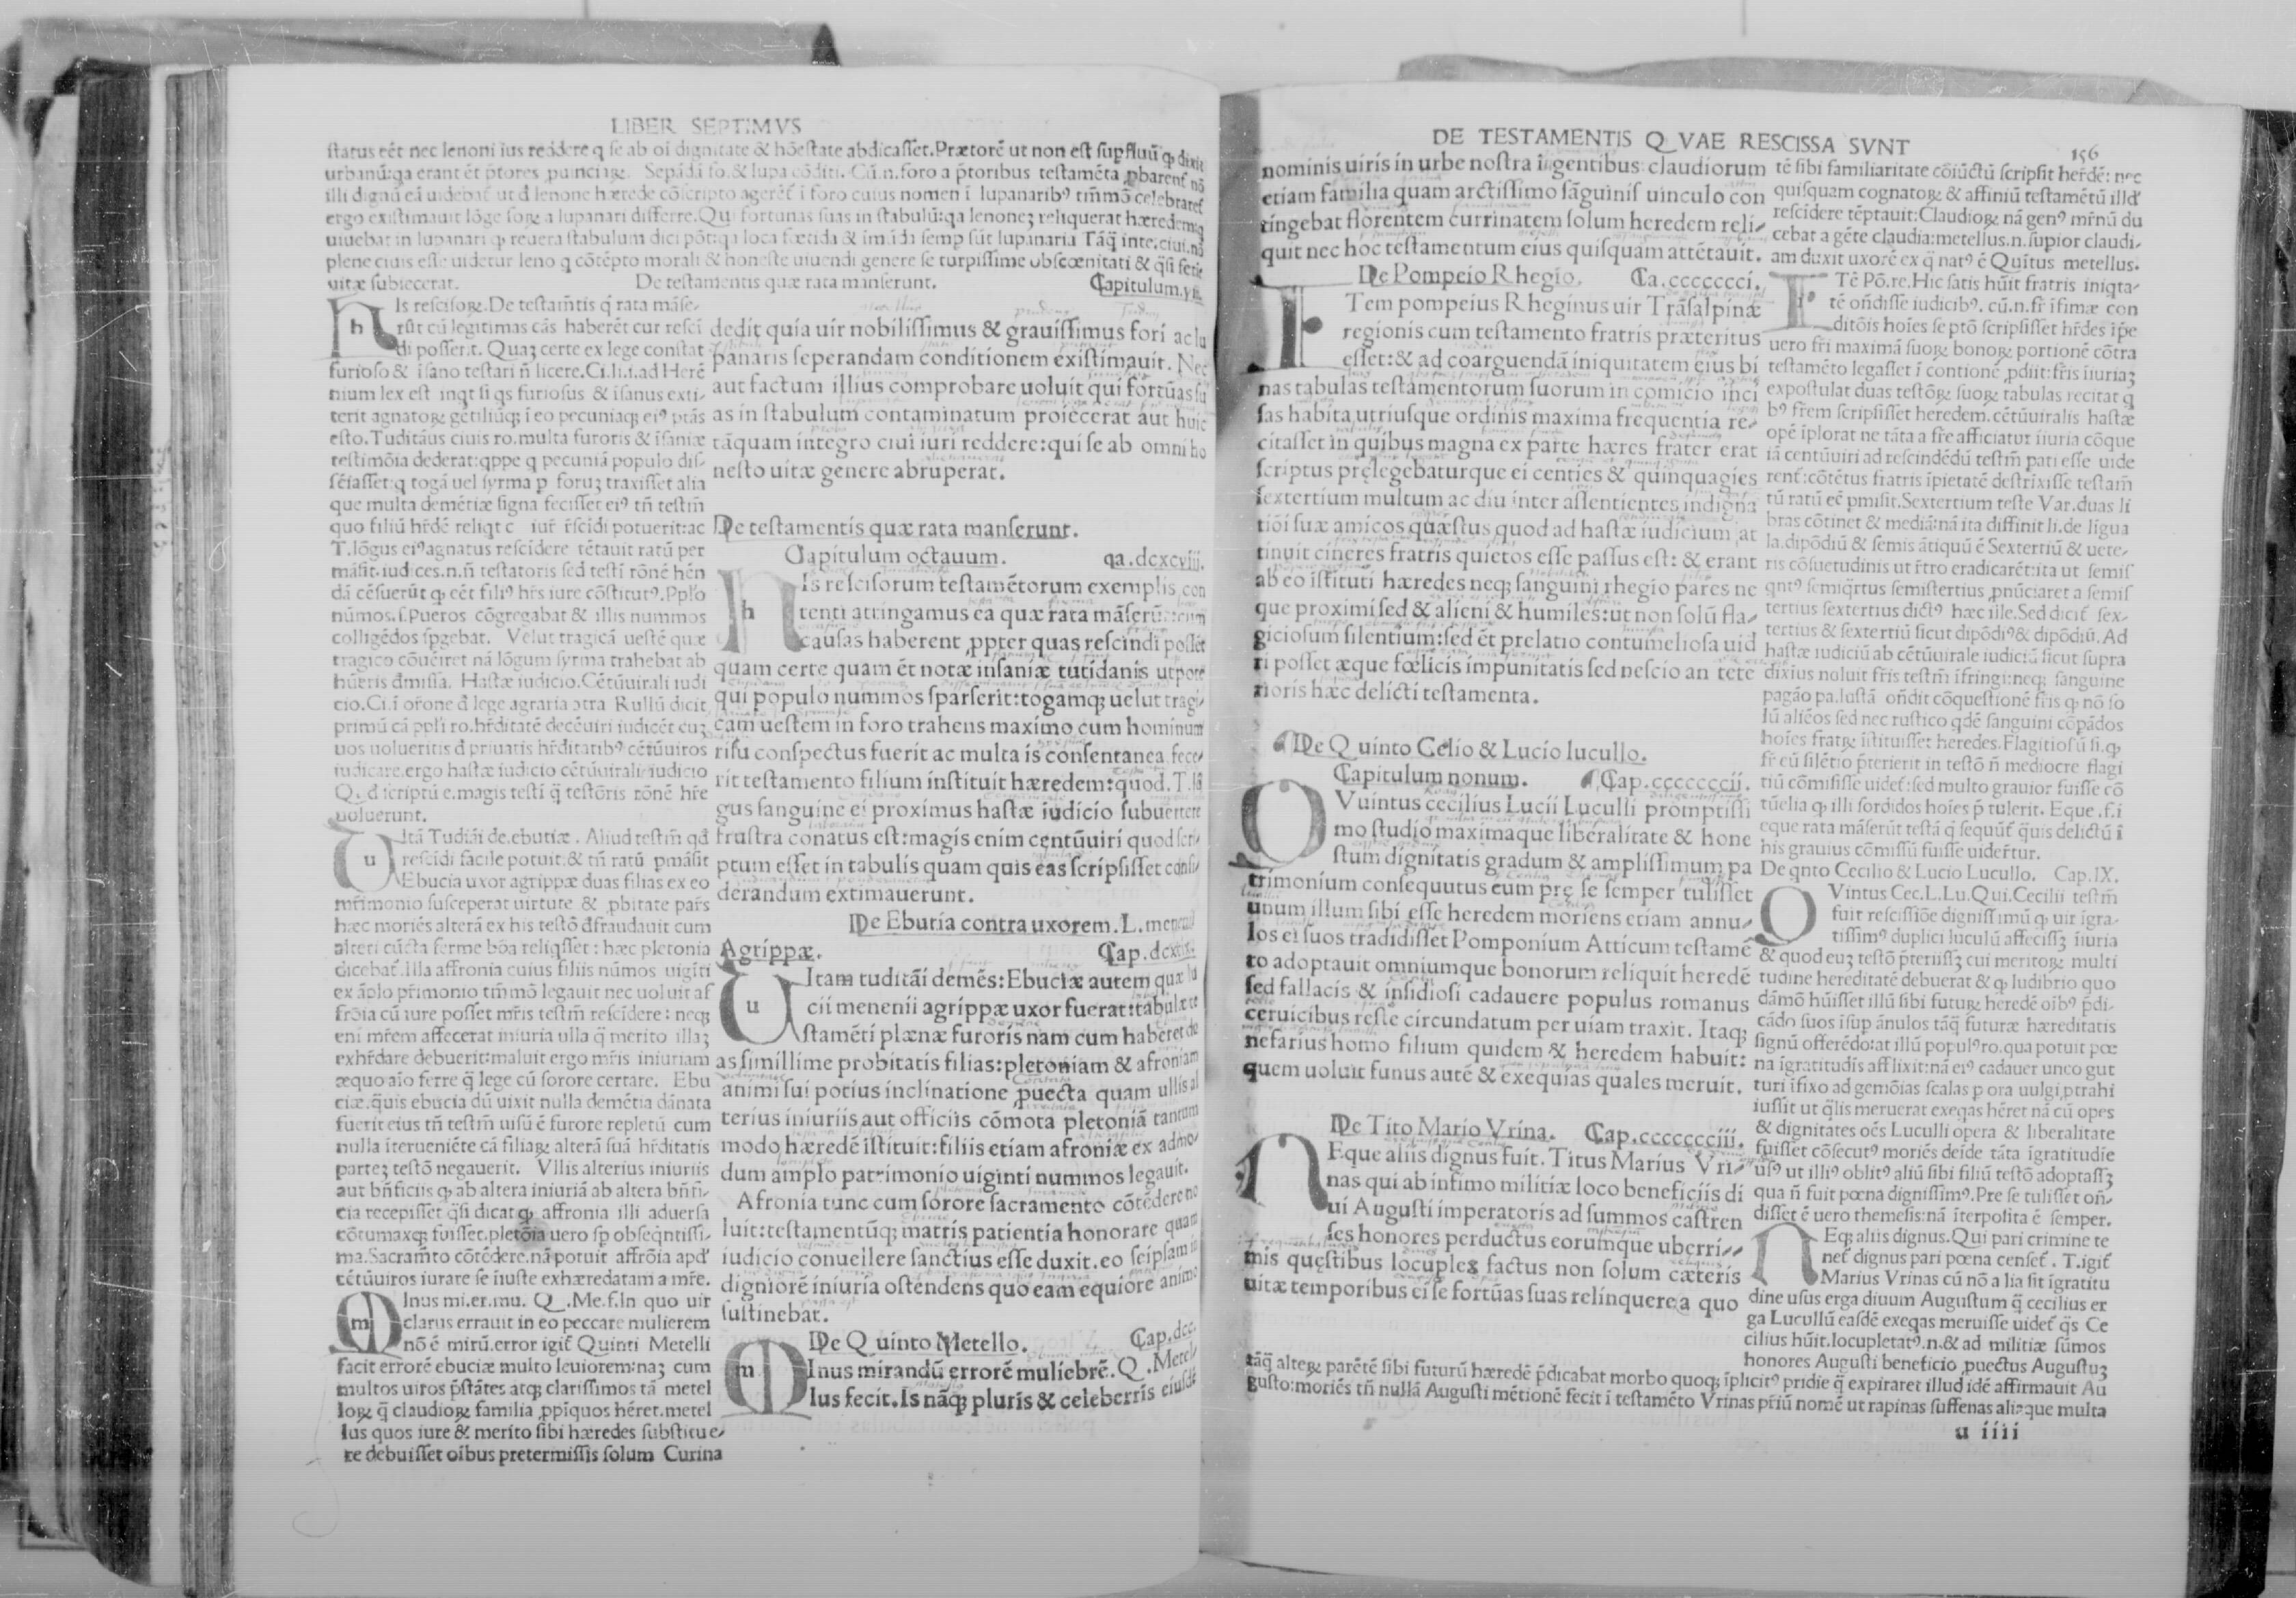 LIBER SEPTIMVS
status eēt nec lenoni ius reddere q se ab oī dignitate & hōestate abdicasset. Prætorē ut non est supfluū ꝙ dixit
urbanū:qa erant ēt p̄tores
illi dignū eā uidebat̄ ut đ lenone hærede cōscripto ageret̄ ī foro cuius nomen ī lupanaribꝰ tm̄mō celebratet̄
ergo existimauit lōge foꝝ a lupanari differre. Qui fortunas suas in stabulū:qa lenoneʒ reliquerat hæredem:q
uiuebat in lupanari ꝙ reuera stabulum dici pōt:qa loca fœtida & īmūda semp sūt lupanaria
plene ciuis esse uidetur leno q cōtēpto morali & honeste uiuendi genere se turpissime obscœnitati & q̄si
uitæ subiecerat. De testamentis quæ rata manserunt. Capitulum.
hIs resciſoꝝ. De testam̄tis q̄ rata māse-
rūt cū legitimas cās haberēt cur resci
di posserit. Quaʒ certe ex lege constat
furioso & īsano testari n̄ licere. Ci.li.i.ad Herē
nium lex est inqt si qs furiosus & īsanus exti-
terit agnatoꝝ gētiliūqꝫ ī eo pecuniaqꝫ eiꝰ ptās
esto. Tuditāus ciuis ro. multa furoris & īsaniæ
testimōia dederat:qppe q pecuniā populo dis-
sēiasset:q togā uel syrma p foruʒ traxisset alia
que multa demētiæ signa fecisset eiꝰ tn̄ testm̄
quo filiū hr̄dē reliqt
T. lōgus eiꝰ agnatus rescidere tētauit ratū per
māsit. iudices.n.n̄ testatoris sed testi rōnē hēn
dā cēsuerūt ꝙ cēt filiꝰ hr̄s iure cōstitutꝰ. Pplo
nūmos.ſ. Pueros cōgregabat & illis nummos
colligēdos spgebat. Velut tragicā uestē quæ
tragico cōuēiret nā lōgum syrma trahebat ab
hūeris đmissa. Hastæ iudicio. Cētūuirali iudi
cio. Ci.ī or̄one đ lege agraria ɔtra Rullū dicit
primū cā ppli ro. hr̄ditatē decēuiri iudicēt cuʒ
uos uolueritis đ priuatis hr̄ditatibꝰ cētūuiros
iudicare. ergo hastæ iudicio cētūuirali iudicio
Q. đ scriptū e. magis testi q̄ testōris rōnē hr̄e
uoluerunt.
uItā Tudiāi de.ebutiæ. Aliud testm̄ qđ
rescidi facile potuit:& tn̄ ratū pmāsit
Ebucia uxor agrippæ duas filias ex eo
mr̄imonio susceperat uirtute & ꝓbitate pars
hæc moriēs alterā ex his testō đfraudauit cum
alteri cūcta ferme bōa reliqsset: hæc pletonia
dicebat̄. Illa affronia cuius filiis nūmos uigiti
ex āplo pr̄imonio tm̄mō legauit nec uoluit af
frōia cū iure posset mr̄is testm̄ rescidere: neqꝫ
eni mr̄em affecerat iniuria ulla q̄ merito illaʒ
exhr̄dare debuerit:maluit ergo mr̄is iniuriam
æquo aīo ferre q̄ lege cū sorore certare. Ebu
ciæ. q̄uis ebucia dū uixit nulla demētia dānata
fuerit eius tn̄ testm̄ uisū ē furore repletū cum
nulla īterueniēte cā filiaꝝ alterā suā hr̄ditatis
parteʒ testō negauerit. Vllis alterius iniuriis
aut bn̄ficiis ꝙ ab altera iniuriā ab altera bn̄fi-
cia recepisset q̄si dicat ꝙ affronia illi aduersa
cōtumaxqꝫ fuisset. pletōia uero sp obseqntissi-
ma. Sacram̄to cōtēdere. nā potuit affrōia apđ
cētūuiros iurare se iiuste exhæredatam a mr̄e.
mInus mi.er.mu. Q. Me.f. In quo uir
clarus errauit in eo peccare mulierem
nō ē mirū. error igit̄ Quinti Metelli
facit errorē ebuciæ multo leuiorem:naʒ cum
multos uiros p̄stātes atqꝫ clarissimos tā metel
loꝝ q̄ claudioꝝ familia ꝓpiquos hēret. metel
lus quos iure & merito sibi hæredes substitue-
re debuisset oibus pretermissis solum Curina
dedit quia uir nobilissimus & grauissimus fori ac lu
panaris seperandam conditionem existimauit. Nec
aut factum illius comprobare uoluit qui fortūas su
as in stabulum contaminatum proiecerat aut huic
tāquam integro ciui iuri reddere:qui se ab omni ho
nesto uitæ genere abruperat.
De testamentis quæ rata manserunt.
Capitulum octauum. qa.dcxcviii.
hIs resciforum testamētorum exemplis con
tenti attingamus ea quæ rata māserū
causas haberent ꝓpter quas rescindi possēt
quam certe quam ēt notæ insaniæ tutidanis utpote
qui populo nummos sparserit:togamqꝫ uelut tragi-
cam uestem in foro trahens maximo cum hominum
risu conspectus fuerit ac multa is consentanea fece-
rit testamento filium instituit hæredem:quod. T. lō
gus sanguine ei proximus hastæ iudicio subuertere
frustra conatus est:magis enim centūuiri quod scri-
ptum esset in tabulis quam quis eas scripsisset consi-
derandum extimauerunt.
De Ebutia contra uxorem. L. menenii
Agrippæ. Cap.
uItam tuditāi demēs:Ebuciæ autem quæ lu
cii menenii agrippæ uxor fuerat:tabulæ te
stamēti plænæ furoris nam cum haberet du
as simillime probitatis filias:pletoniam & afroniam
animi sui potius inclinatione ꝓuecta quam ullis al
terius iniuriis aut officiis cōmota pletoniā tantum
modo hæredē istituit:filiis etiam afroniæ ex admo-
dum amplo patrimonio uiginti nummos legauit.
Afronia tunc cum sorore sacramento cōtēdere no
luit:testamentūqꝫ matris patientia honorare quam
iudicio conuellere sanctius esse duxit. eo seipsam in
digniorē iniuria ostendens quo eam equiore animo
sustinebat.
De Quinto Metello. Cap.dcc.
mInus mirandū errorē muliebrē. Q. Metel-
lus fecit. Is nāqꝫ pluris & celeberris eiusdē
DE TESTAMENTIS QVAE RESCISSA SVNT
156
nominis uiris in urbe nostra īgentibus: claudiorum
etiam familia quam arctissimo sāguinis uinculo con
tingebat florentem currinatem solum heredem reli-
quit nec hoc testamentum eius quisquam attētauit.
De Pompeio Rhegio. Ca.ccccccci.
ITem pompeius Rheginus uir Trāsalpinæ
regionis cum testamento fratris præteritus
esset:& ad coarguendā iniquitatem eius bi
nas tabulas testamentorum suorum in comicio inci
sas habita utriusque ordinis maxima frequentia re-
citasset in quibus magna ex parte hæres frater erat
scriptus prelegebaturque ei centies & quinquagies
sextertium multum ac diu inter assentientes indigna
tiōi suæ amicos quæstus quod ad hastæ iudicium at
tinuit cineres fratris quietos esse passus est: & erant
ab eo istituti hæredes neqꝫ sanguini rhegio pares ne
que proximi sed & alieni & humiles:ut non solū fla-
giciosum silentium:sed ēt prelatio contumeliosa uid
ri posset æque fœlicis impunitatis sed nescio an tete
rioris hæc delicti testamenta.
De Quinto Celio & Lucio lucullo.
Capitulum nonum. Cap.cccccccii.
QVintus cecilius Lucii Luculli promptissi
mo studio maximaque liberalitate & hone
stum dignitatis gradum & amplissimum pa
trimonium consequutus eum pre se semper tulisset
unum illum sibi esse heredem moriens etiam annu-
los ei suos tradidisset Pomponium Atticum testamē
to adoptauit omniumque bonorum reliquit heredē
sed fallacis & insidiosi cadauere populus romanus
ceruicibus reste circundatum per uiam traxit. Itaqꝫ
nefarius homo filium quidem & heredem habuit:
quem uoluit funus autē & exequias quales meruit.
De Tito Mario Vrina. Cap.ccccccciii.
NEque aliis dignus fuit. Titus Marius Vri-
nas qui ab infimo militiæ loco beneficiis di
ui Augusti imperatoris ad summos castren
ses honores perductus eorumque uberri-
mis questibus locuples factus non solum cæteris
uitæ temporibus ei se fortūas suas relinquere a quo
tē sibi familiaritate cōiūctū scripsit her̄dē: nec
quisquam cognatoꝝ & affiniū testamētū illđ
rescidere tēptauit:Claudioꝝ nā genꝰ mr̄nū du
cebat a gēte claudia:metellus.n.supior claudi-
am duxit uxorē ex q̄ natꝰ ē Quitus metellus.
ITē Pō.re. Hic satis hūit fratris iniqta-
tē on̄disse iudicibꝰ. cū.n.fr̄ ifimæ con
ditōis hoies se ptō scripsisset hr̄des ipe
uero fr̄i maximā suoꝝ bonoꝝ portionē cōtra
testamēto legasset ī contionē ꝓdiit:fr̄is iiuriaʒ
expostulat duas testōꝝ suoꝝ tabulas recitat q
bꝰ fr̄em scripsisset heredem. cētūuiralis hastæ
opē iplorat ne tāta a fr̄e afficiatur iiuria cōque
iā centūuiri ad rescindēdū testm̄ pati esse uide
rent̄:cōtētus fratris ipietatē destrixisse testam̄
tū ratū eē pmisit. Sextertium teste Var. duas li
bras cōtinet & mediā:nā ita diffinit li. de ligua
la. dipōdiū & semis ātiquū ē Sextertiū & uete-
ris cōsuetudinis ut r̄tro eradicarēt:ita ut semis
qntꝰ semiqrtus semistertius pnūciaret a semis
tertius sextertius dictꝰ hæc ille. Sed dicit̄ sex-
tertius & sextertiū sicut dipōdiꝰ & dipōdiū. Ad
hastæ iudiciū ab cētūuirale iudiciū sicut supra
diximus noluit fr̄is testm̄ ifringi:neqꝫ sanguine
pagāo pa. Iustā on̄dit cōquestionē fr̄is ꝙ nō so
lū aliēos sed nec rustico qdē sanguini cōpādos
hoies fratꝝ istituisset heredes. Flagitiosū si.ꝙ
fr̄ eū silētio p̄terierit in testō n̄ mediocre flagi
tiū cōmisisse uidet̄:sed multo grauior fuisse cō
tūelia ꝙ illi sordidos hoies p̄tulerit. Eque.f.i
eque rata māserūt testā q̄ sequūt̄ q̄uis delictū ī
his grauius cōmissū fuisse uider̄tur.
De qnto Cecilio & Lucio Lucullo. Cap.IX.
QVintus Cec.L.Lu. Qui. Cecilii testm̄
fuit rescissiōe dignissimū ꝙ uir īgra-
tissimꝰ duplici luculū affecissʒ iiuria
& quod euʒ testō p̄teriissʒ cui meritoꝝ multi
tudine hereditatē debuerat & ꝙ ludibrio quo
dāmō hūisset illū sibi futuꝝ heredē oībꝰ p̄di-
cādo suos īsup ānulos tāq̄ futuræ hæreditatis
signū offerēdo:at illū populꝰ ro. qua potuit pœ
na īgratitudis afflixit:nā eiꝰ cadauer unco gut
turi īfixo ad gemōias scalas p ora uulgi ptrahi
iussit ut q̄lis meruerat exeqas hēret nā cū opes
& dignitates oēs Luculli opera & liberalitate
fuisset cōsecutꝰ moriēs deide tāta īgratitudīe
usꝰ ut illiꝰ oblitꝰ aliū sibi filiū testō adoptassʒ
qua n̄ fuit pœna dignissimꝰ. Pre se tulisset on̄-
disset ē uero themesis:nā iterpolita ē semper.
NEqꝫ aliis dignus. Qui pari crimine te
net̄ dignus pari pœna censet̄. T. igit̄
Marius Vrinas cū nō alia sit īgratitu
dine usus erga diuum Augustum q̄ cecilius er
ga Lucullū easdē exeqas meruisse uidet̄ q̄s Ce
cilius hūit. locupletatꝰ.n.& ad militiæ sūmos
honores Augusti beneficio ꝓuectus Augustuʒ
tāq̄ alteꝝ parētē sibi futurū hæredē p̄dicabat morbo quoqꝫ iplicitꝰ pridie q̄ expiraret illud idē affirmauit Au
gusto:moriēs tn̄ nullā Augusti mētionē fecit ī testamēto Vrinas pr̄iū nomē ut rapinas suffenas aliaque multa
u iiii